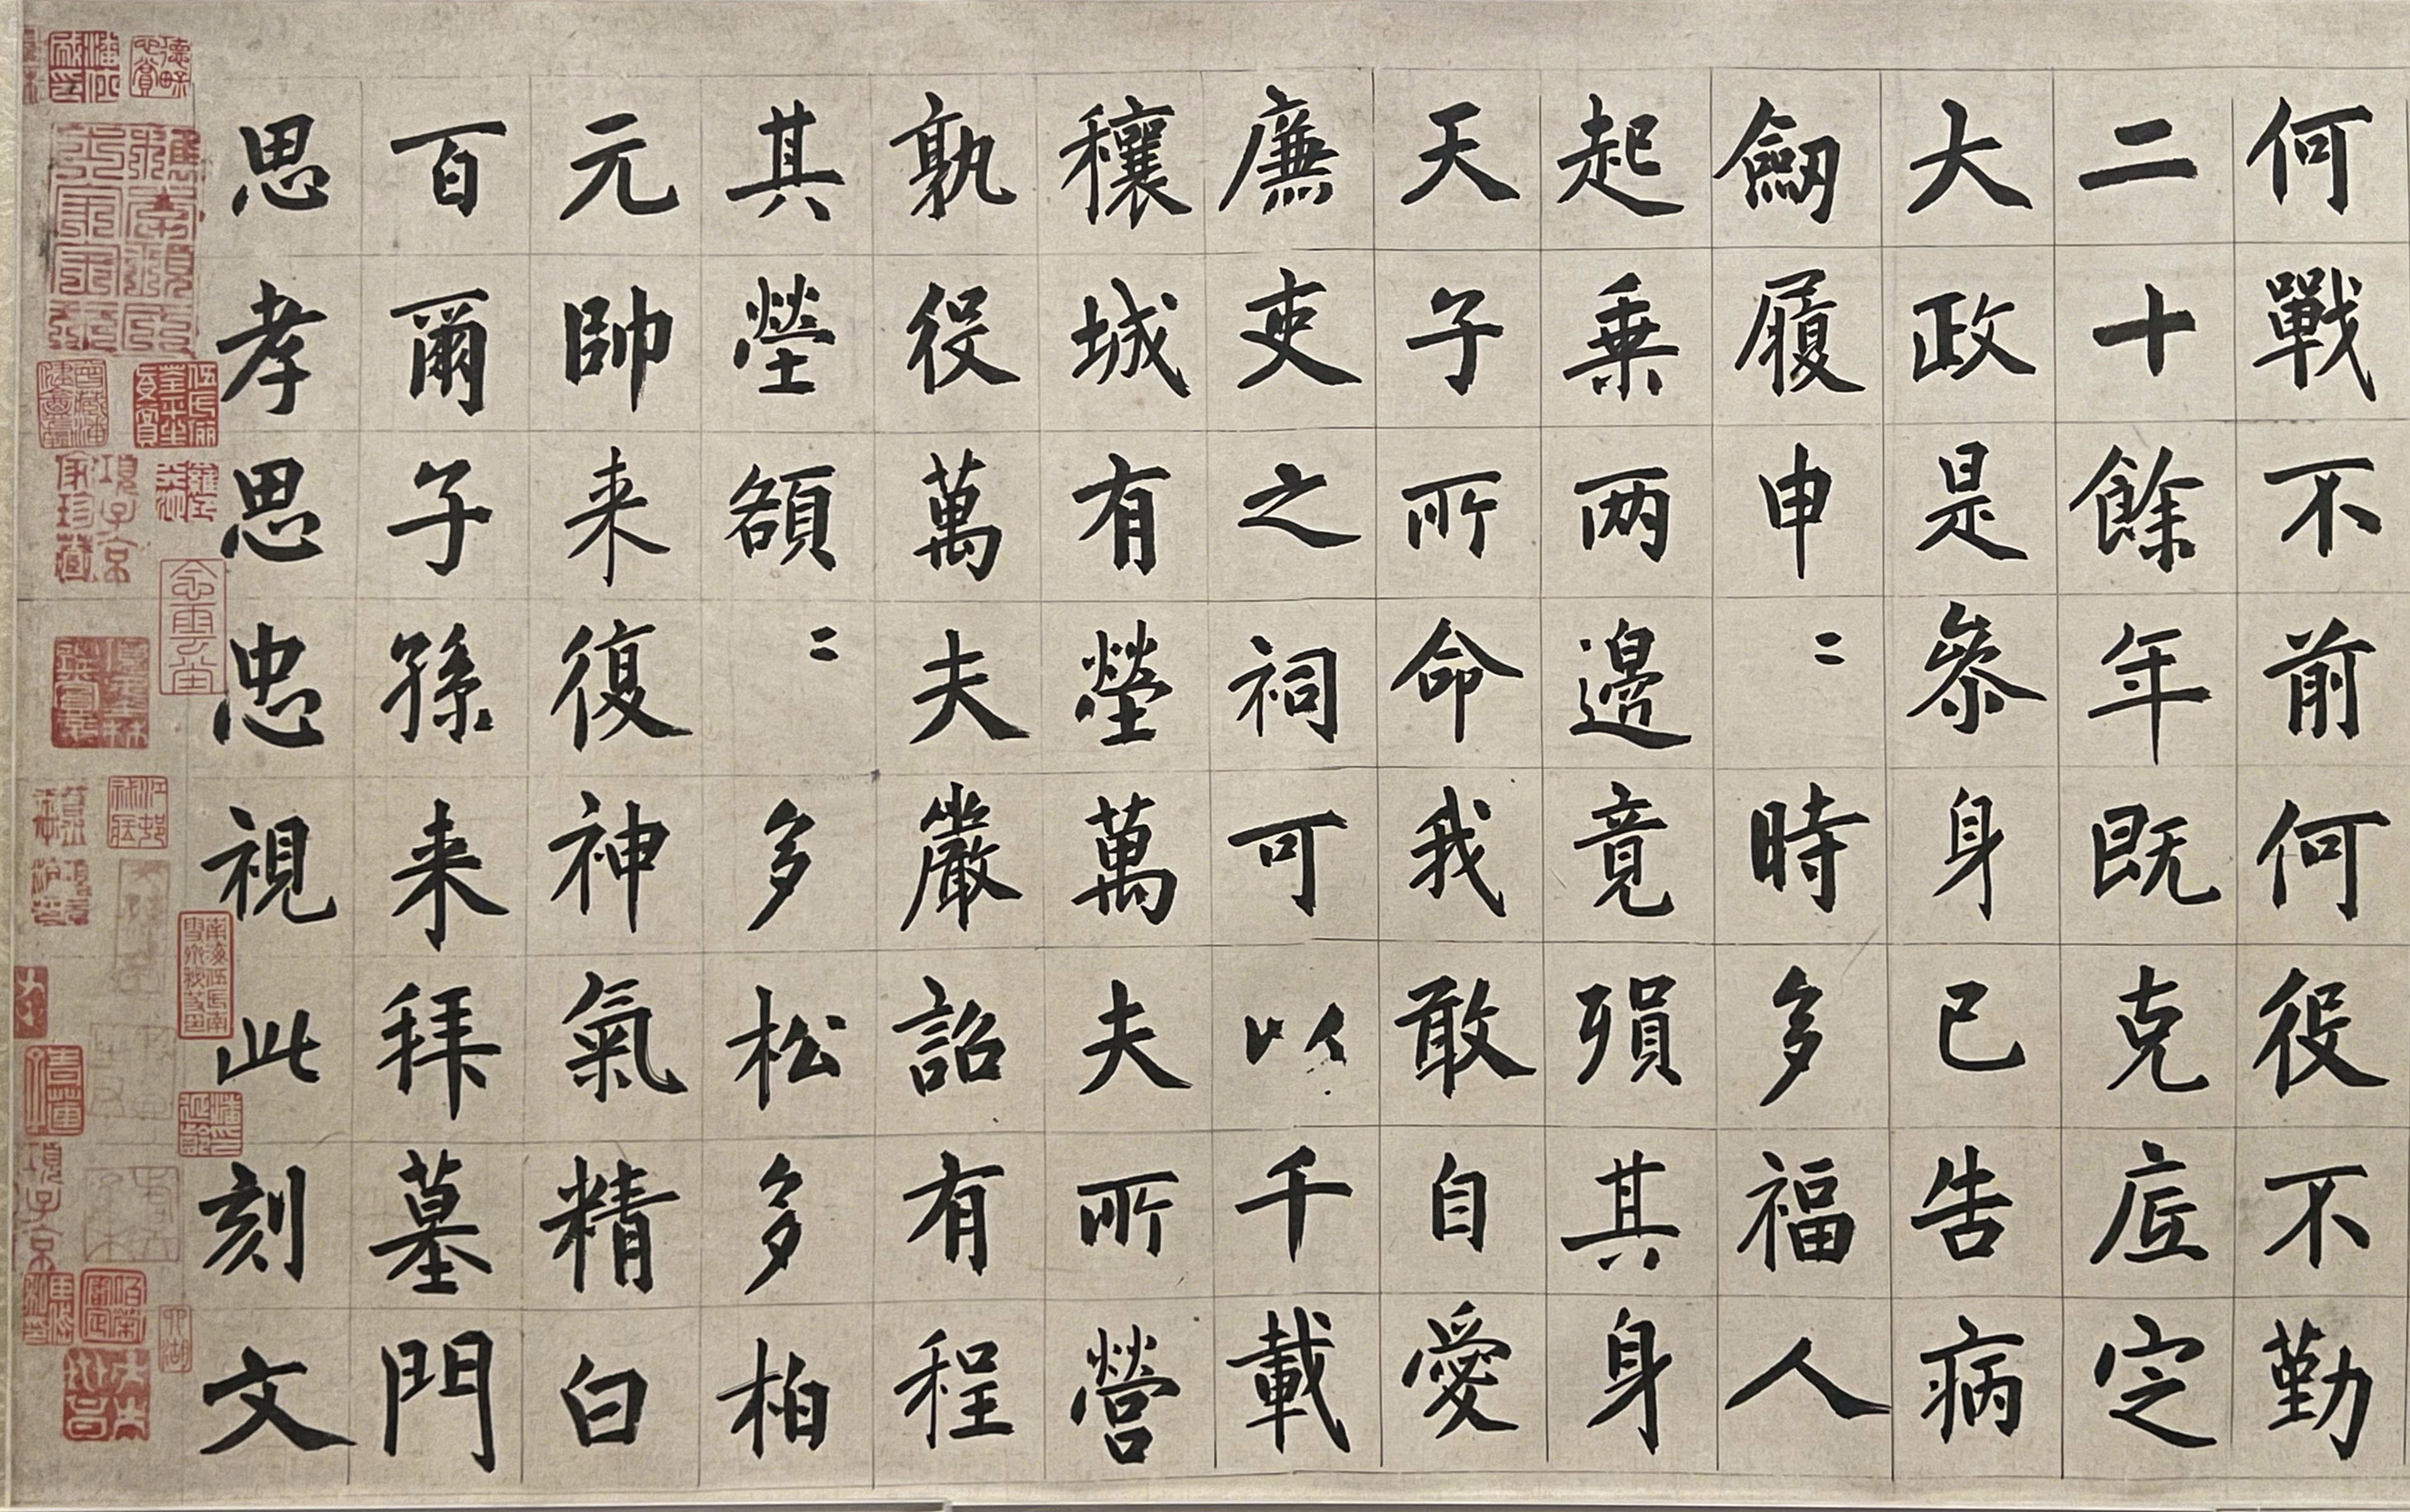 何戰不前何役不勤
二十餘年既克底定
大政是叅身已告病
劒履申〻時多福人
起乗两邊竟殞其身
天子所命我敢自愛
廉吏之祠可以千載
穰城有塋萬夫所營
孰役萬夫嚴詔有程
其塋額〻多松多柏
元帥来復神氣精白
百爾子孫来拜墓門
思孝思忠視此刻文
項子京家珍藏